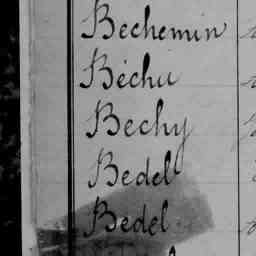 Bechemin
Béchu
Bechy
Bedel
Bedel